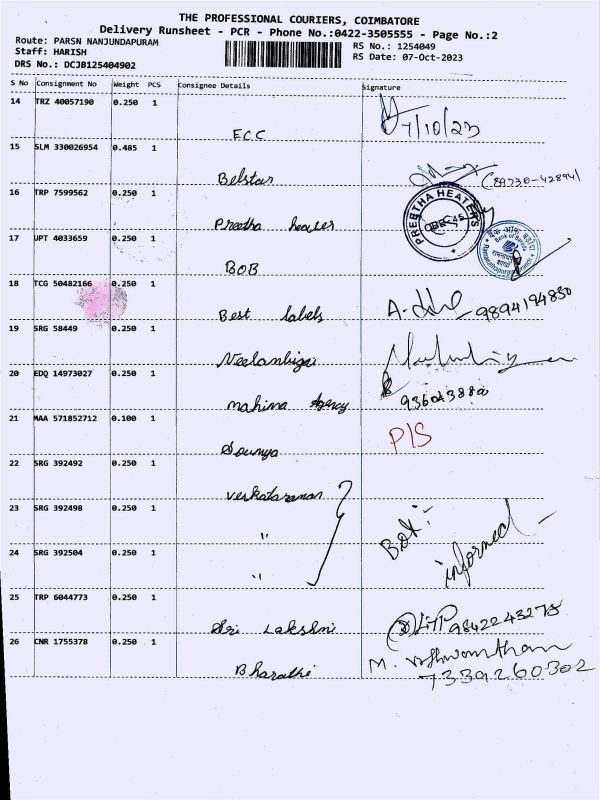 THE PROFESSIONAL COURIERS, COIMBATORE
Delivery Runsheet - PCR - Phone No.:0422-3505555 - Page No.:2
Route: PARSN NANJUNDAPURAM
Staff: HARISH
DRS No.: DCJB125404902
RS No.: 1254049
RS Date: 07-Oct-2023
S No Consignment No Weight PCS Consignee Details Signature
14 TRZ 40057190 0.250 1
ECC 7/10/23
15 SLM 330026954 0.485 1
Belstar
16 TRP 7599562 0.250 1
Preetha heater PREETHA HEATERS
17 UPT 4033659 0.250 1
BOB बैंक ऑफ़ बड़ौदा Bank of Baroda
18 TCG 50482166 0.250 1
Best labels 9894194830
19 SRG 58449 0.250 1
Neelambigai
20 EDQ 14973027 0.250 1
mahima Agency
21 MAA 571852712 0.100 1
Sounya P/S
22 SRG 392492 0.250 1
Venkataraman
23 SRG 392498 0.250 1
"
24 SRG 392504 0.250 1
" informed
25 TRP 6044773 0.250 1
Sri Lakshmi 9842243278
26 CNR 1755378 0.250 1
Bharathi M.
7339260302